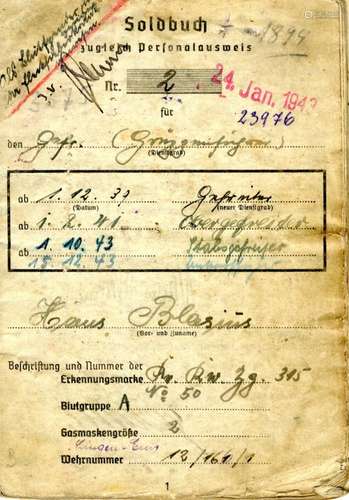 Soldbuch
zugleich Personalausweis
Nr. 2
24. Jan. 194
23976
für
den Gefr.
(Dienstgrad)
ab 1. 12. 39 Gefreiter
(Datum) (neuer Dienstgrad)
ab 1. 2. 41 Obergefreiter
ab 1. 10. 43 Stabsgefreiter
ab 15. 12. 43
Hans Blasius
(Vor- und Zuname)
Beschriftung und Nummer der
Erkennungsmarke Zg. 315
No 50
Blutgruppe A
Gasmaskengröße 2
Wehrnummer 12/161/1
1